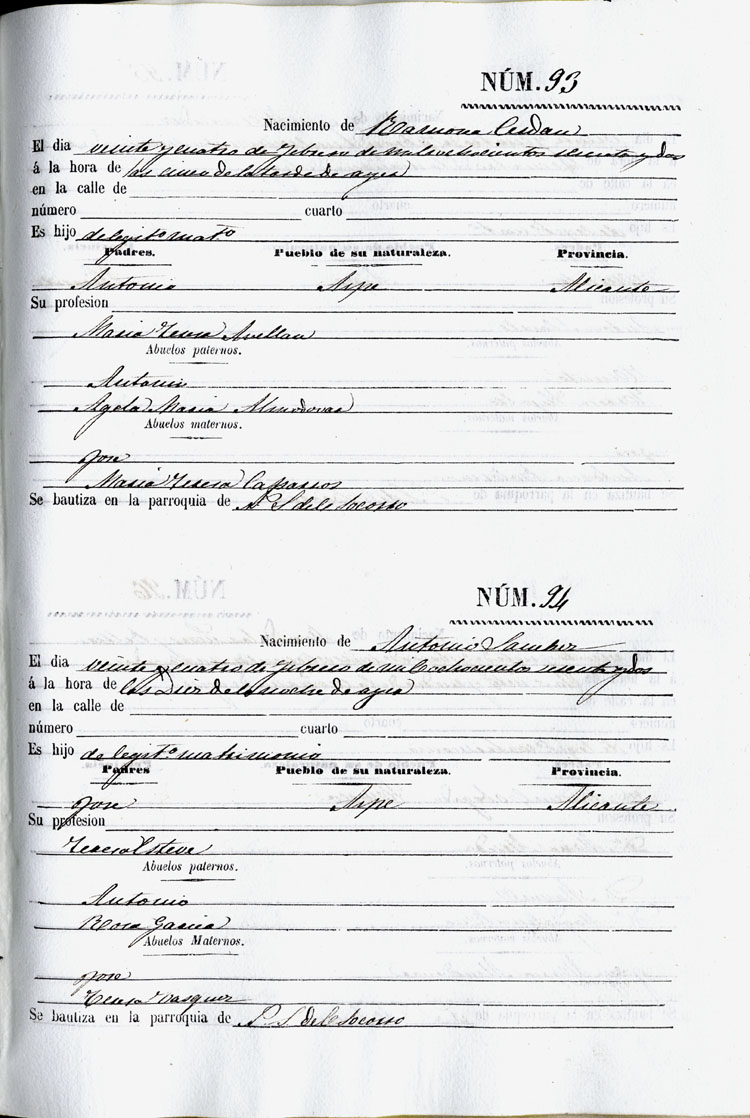 NÚM. 93
Nacimiento de Ramona Cerdan
El dia veinte y cuatro de Febrero de mil ochocientos sesenta y dos
á la hora de las cinco de la tarde de ayer
en la calle de
número cuarto
Es hijo de legit.º mat.º
Padres. Pueblo de su naturaleza. Provincia.
Antonio Aspe Alicante
Su profesion
Maria Teresa Avellan
Abuelos paternos.
Antonio
Maria Almodovar
Abuelos maternos.
Jose
Maria Teresa Caparros
Se bautiza en la parroquia de N. S. del Socorro
NÚM. 94
Nacimiento de Antonio Sanchez
El dia veinte y cuatro de Febrero de mil ochocientos sesenta y dos
á la hora de las Diez de la noche de ayer
en la calle de
número cuarto
Es hijo de legit.º matrimonio
Padres Pueblo de su naturaleza. Provincia.
Jose Aspe Alicante
Su profesion
Teresa Esteve
Abuelos paternos.
Antonio
Rosa Garcia
Abuelos Maternos.
Jose
Teresa Vasquez
Se bautiza en la parroquia de N. S. del Socorro